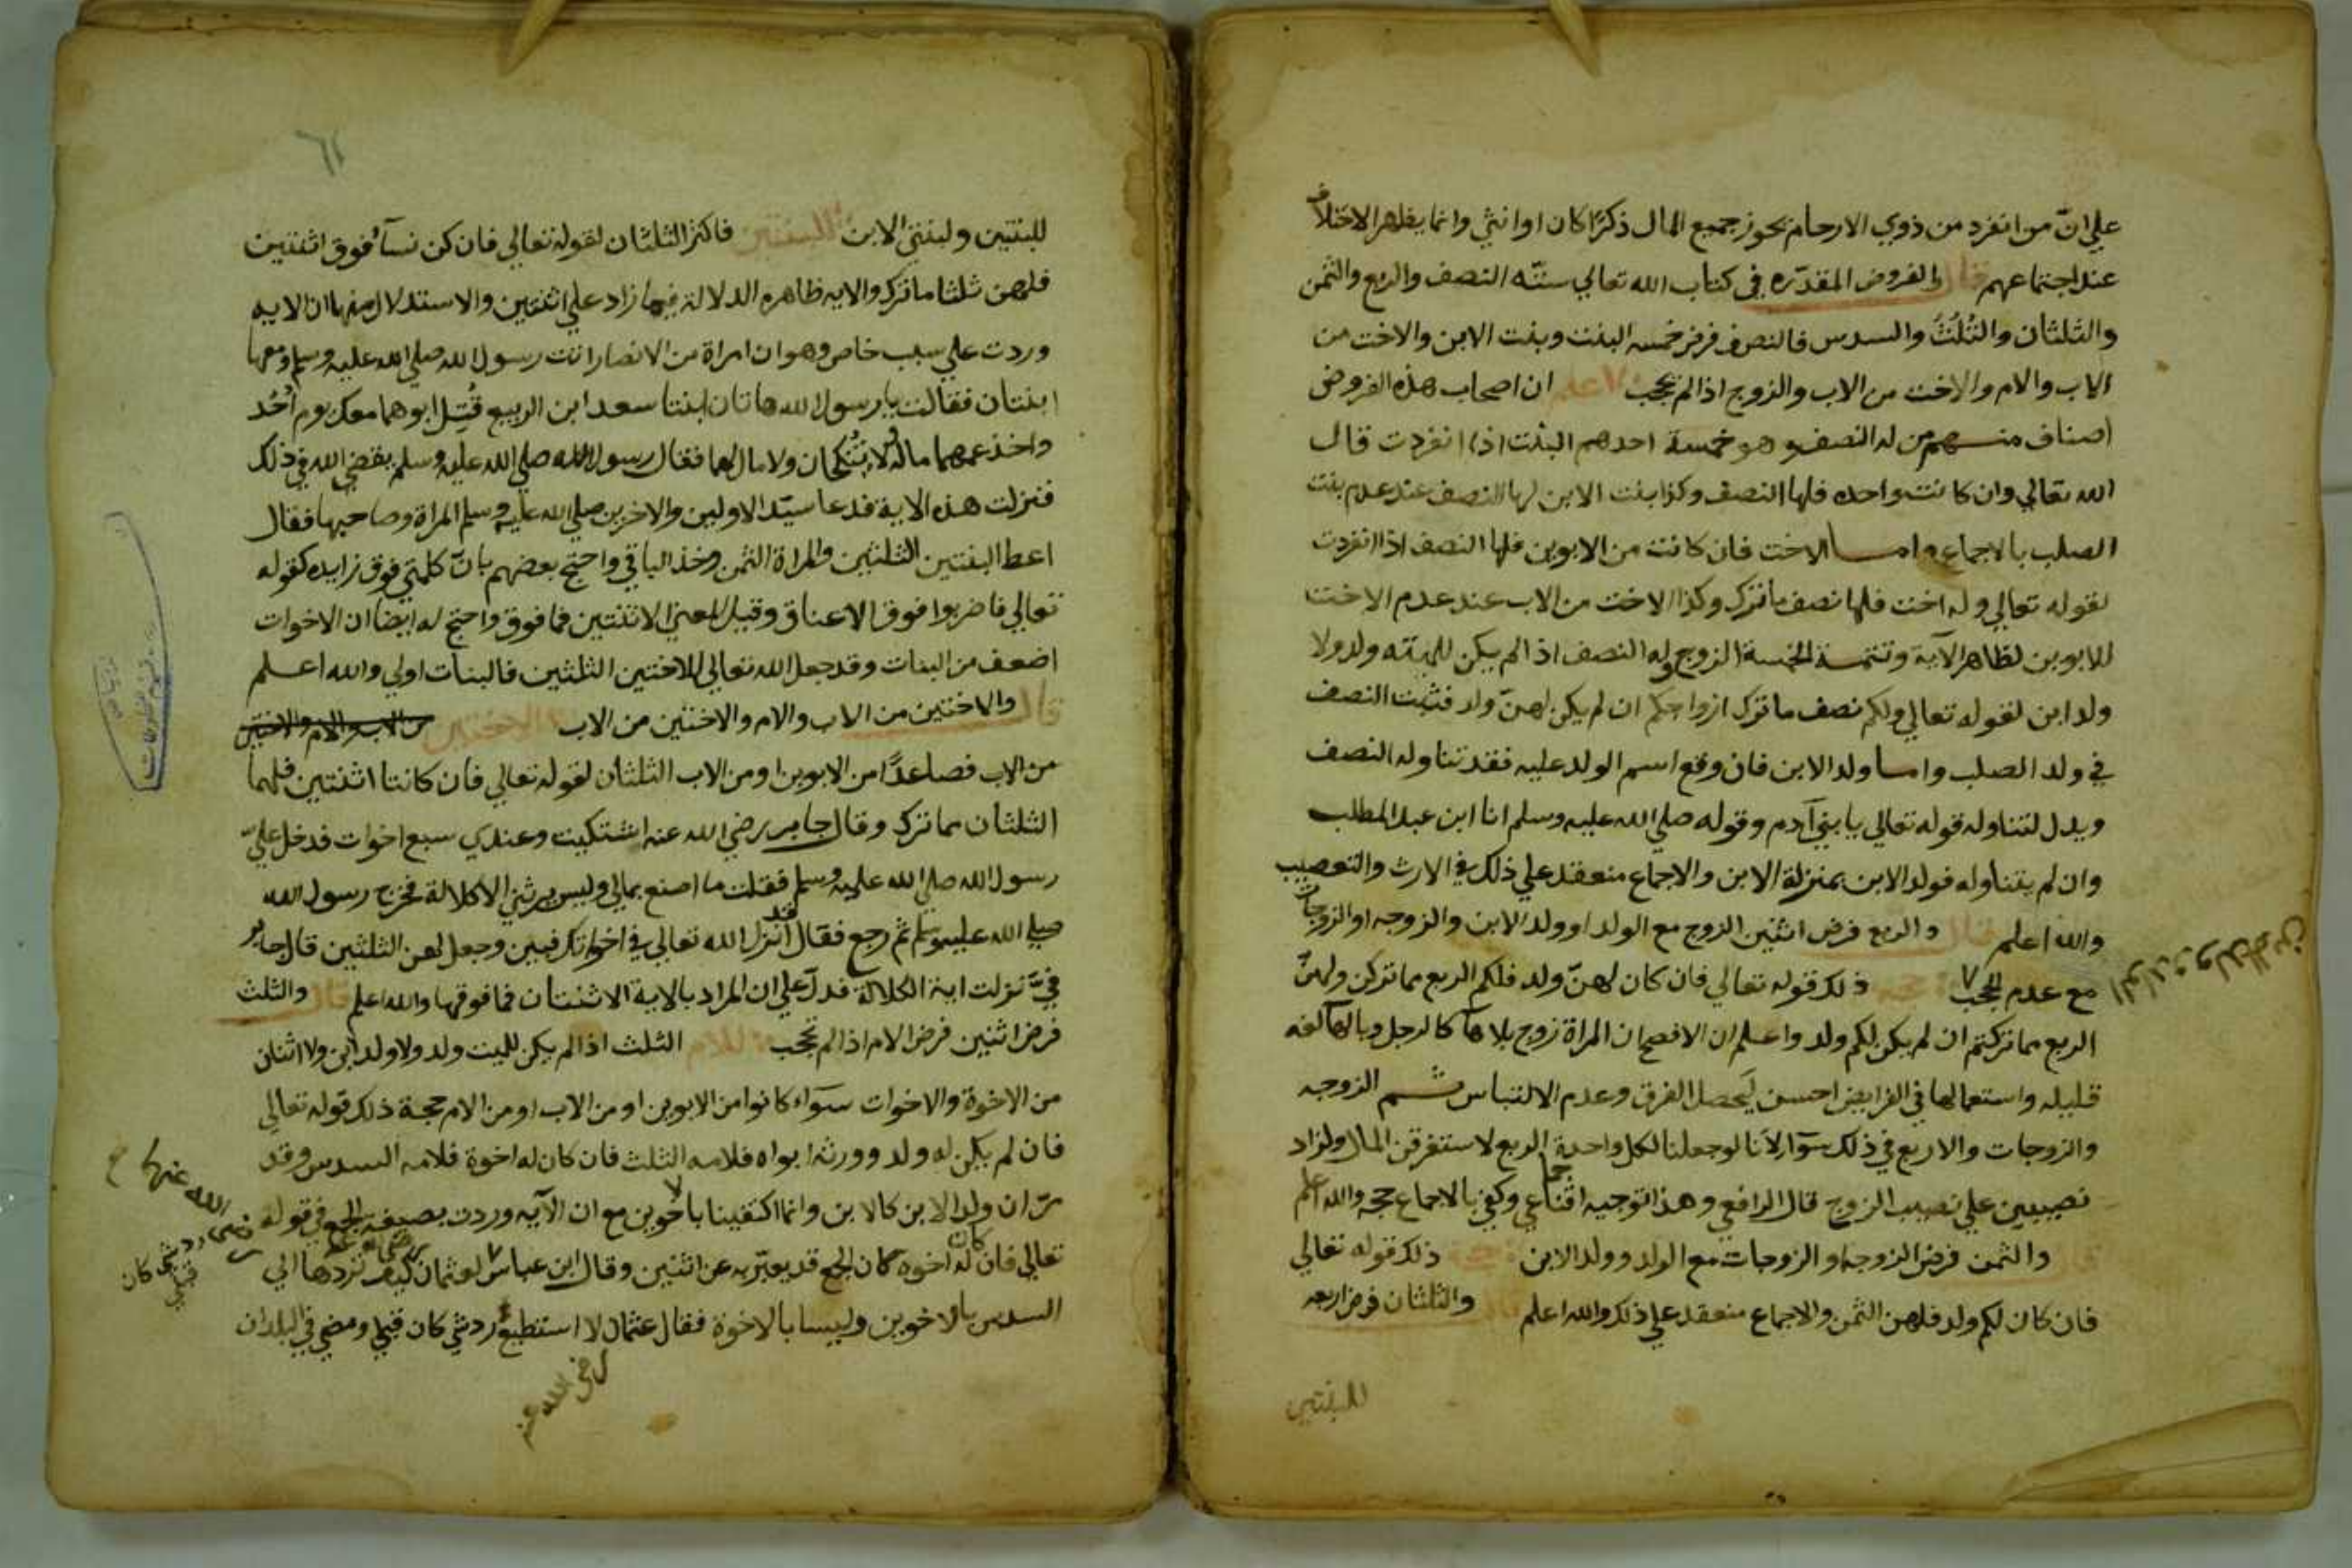 علي ان من انفرد من ذوي الارحام يحوز جميع المال ذكرًا كان او انثي وانما يظهر الاختلاف
عند اجتماعهم قال والفروض المقدّره في كتاب الله تعالي ستّه النصف والربع والثمن
والثلثان والثُلُثُ والسدس فالنصف فرض خمسه البنت وبنت الابن والاخت من
الاب والام والاخت من الاب والزوج اذا لم يحجب اعلم ان اصحاب هذه الفروض
اصناف منهم من له النصف وهو خمسة احدهم البنت اذا انفردت قال
الله تعالي وان كانت واحده فلها النصف وكذا بنت الابن لها النصف عند عدم بنت
الصلب بالاجماع واما الاخت فان كانت من الابوين فلها النصف اذا انفردت
لقوله تعالي وله اخت فلها نصف ما ترك وكذا الاخت من الاب عند عدم الاخت
للابوين لظاهر الآية وتتمة الخمسة الزوج وله النصف اذا لم يكن للميته ولد ولا
ولد ابن لقوله تعالي ولكم نصف ما ترك ازواجكم ان لم يكن لهنّ ولد فثبت النصف
في ولد الصلب واما ولد الابن فان وقع اسم الولد عليه فقد تناوله النصف
ويدل لتناوله قوله تعالي يا بني آدم وقوله صلي الله عليه وسلم انا ابن عبد المطلب
وان لم يتناوله فولد الابن بمنزلة الابن والاجماع منعقد علي ذلك في الارث والتعصيب
والله اعلم قال والربع فرض اثنين الزوج مع الولد او ولد الابن والزوجه او الزوجات
مع عدم الحجب حجة ذلك قوله تعالي فان كان لهنّ ولد فلكم الربع مما تركن ولهنّ
الولد وولد الابن
الربع مما تركتم ان لم يكن لكم ولد واعلم ان الافصح ان المراة زوج بلا هآ كالرجل وبالهآ لغه
قليله واستعمالها في الفرايض احسن ليحصل الفرق وعدم الالتباس ثم الزوجه
والزوجات والاربع في ذلك سوآ لانا لو جعلنا لكل واحدة الربع لاستغرقن المال ولزاد
نصيبهن علي نصيب الزوج قال الرافعي وهذا توجيه اقناعي وكفي بالاجماع حجه والله اعلم
قال والثمن فرض الزوجه او الزوجات مع الولد وولد الابن حجة ذلك قوله تعالي
فان كان لكم ولد فلهن الثمن والاجماع منعقد علي ذلك والله اعلم قال والثلثان فرض اربعه
للبنتين
٦١
للبنتين ولبنتي الابن للبنتين فاكثر الثلثان لقوله تعالي فان كن نسآءً فوق اثنتين
فلهن ثلثا ما ترك والايه ظاهره الدلالة فيما زاد علي اثنتين والاستدلال منها ان الايه
وردت علي سبب خاص وهو ان امراة من الانصار اتت رسول الله صلي الله عليه وسلم ومعها
ابنتان فقالت يا رسول الله هاتان ابنتا سعد ابن الربيع قُتِل ابوهما معك يوم اُحُد
واخذ عمهما ماله ولا تُنكحان ولا مال لهما فقال رسول الله صلي الله عليه وسلم يقضي الله في ذلك
فنزلت هذه الاية فدعا سيّد الاولين والاخرين صلي الله عليه وسلم المراة وصاحبها فقال
اعط البنتين الثلثين والمراة الثمن وخذ الباقي واحتج بعضهم بانّ كلمتي فوق زايده كقوله
تعالي فاضربوا فوق الاعناق وقيل المعني الاثنتين فما فوق واحتج له ايضا ان الاخوات
اضعف من البنات وقد جعل الله تعالي للاختين الثلثين فالبنات اولي والله اعلم
قال والاختين من الاب والام والاختين من الاب الاختين من الاب والام والاختين
من الاب فصاعدًا من الابوين او من الاب الثلثان لقوله تعالي فان كانتا اثنتين فلهما
الثلثان مما ترك وقال جابر رضي الله عنه اشتكيت وعندي سبع اخوات فدخل عليّ
رسول الله صلي الله عليه وسلم فقلت ما اصنع بمالي وليس يرثني الا كلالة فخرج رسول الله
صلي الله عليه وسلم ثم رجع فقال قد انزل الله تعالي في اخواتك فبين وجعل لهن الثلثين قال جابر
فيّ نزلت اية الكلالة فدلّ علي ان المراد بالاية الاثنتان فما فوقها والله اعلم قال والثلث
فرض اثنين فرض الام اذا لم تحجب للام الثلث اذا لم يكن للميت ولد ولا ولد ابن ولا اثنان
من الاخوة والاخوات سوآء كانوا من الابوين او من الاب او من الام حجة ذلك قوله تعالي
فان لم يكن له ولد وورثه ابواه فلامه الثلث فان كان له اخوة فلامه السدس وقد
مرّ ان ولد الابن كالابن وانما اكتفينا باخوين مع ان الآيه وردت بصيغة الجمع في قوله
تعالي فان كان له اخوه لان الجمع قد يعبّر به عن اثنين وقال ابن عباس لعثمان كيف تردها الي
رضي الله عنهما
السدس بالاخوين وليسا بالاخوة فقال عثمان لا استطيع رد شي كان قبلي ومضي في البلدان
رد شي كان قبلي
رضي الله عنه